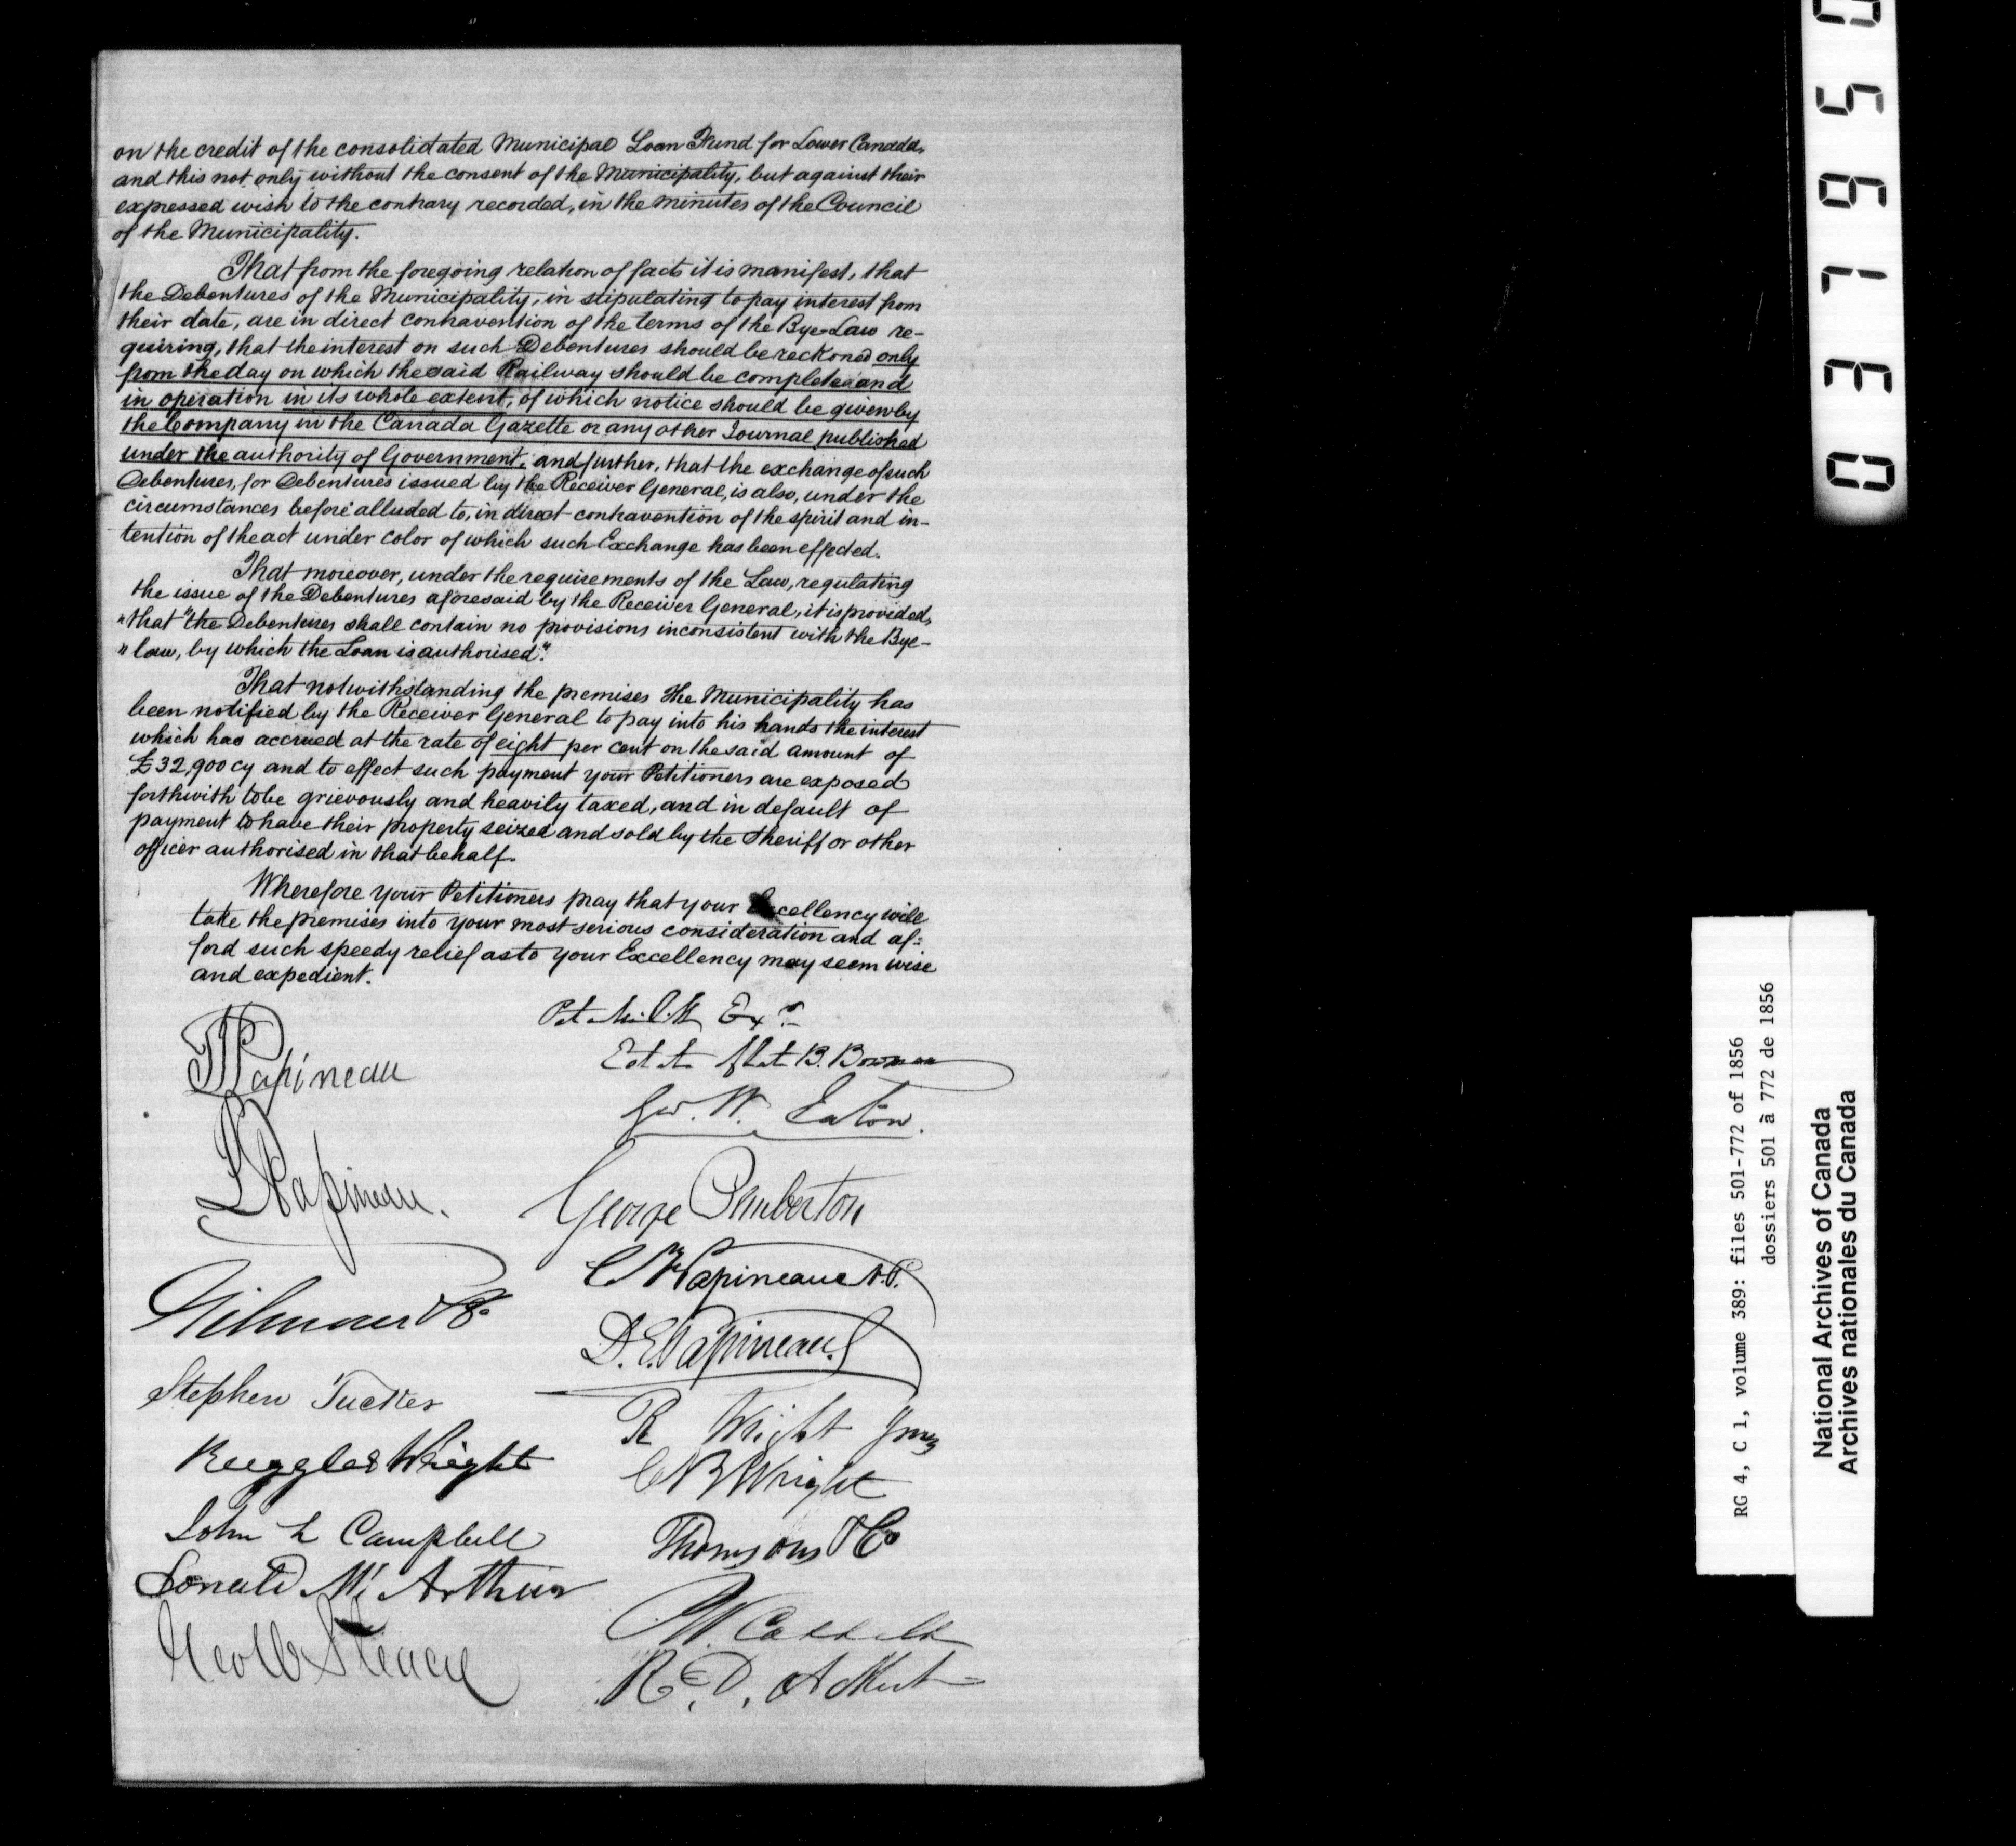 on the credit of the consolidated Municipal Loan Fund for Lower Canada,
and this not only without the consent of the Municipality, but against their
expressed wish to the contrary recorded, in the minutes of the Council
of the Municipality.
That from the foregoing relation of facts it is manifest, that
the Debentures of the Municipality, in stipulating to pay interest from
their date, are in direct contravention of the terms of the Bye-Law re-
quiring, that the interest on such Debentures should be reckoned only
from the day on which the said Railway should be completed and
in operation in its whole extent, of which notice should be given by
the Company in the Canada Gazette or any other Journal published
under the authority of Government, and further, that the exchange of such
Debentures, for Debentures issued by the Receiver General, is also, under the
circumstances before alluded to, in direct contravention of the spirit and in-
tention of the act under color of which such Exchange has been effected.
That moreover, under the requirements of the Law, regulating
the issue of the Debentures aforesaid by the Receiver General, it is provided,
"that "the Debentures shall contain no provisions inconsistent with the Bye-
"law, by which the Loan is authorised".
That notwithstanding the premises the Municipality has
been notified by the Receiver General to pay into his hands the interest
which has accrued at the rate of eight per cent on the said amount of
£32,900 cy and to effect such payment your Petitioners are exposed
forthwith to be grievously and heavily taxed, and in default of
payment to have their property seized and sold by the Sheriff or other
officer authorised in that behalf.
Wherefore your Petitioners pray that your Excellency will
take the premises into your most serious consideration and af=
ford such speedy relief as to your Excellency may seem wise
and expedient.
Ex
Papineau
B. Bowman
Geo. W. Eaton.
Papineau.
George Pemberton
Papineau N.P.
Gilmour & Co
D.E. Papineau
Stephen Tucker
R Wright Junr
Ruggles Wright
C B Wright
John L Campbell
Thomsons & Co
Donald Mc Arthur
W.
R. D. Ackert
0 3 1 9 5
RG 4, C 1, volume 389: files 501-772 of 1856
dossiers 501 à 772 de 1856
National Archives of Canada
Archives nationales du Canada